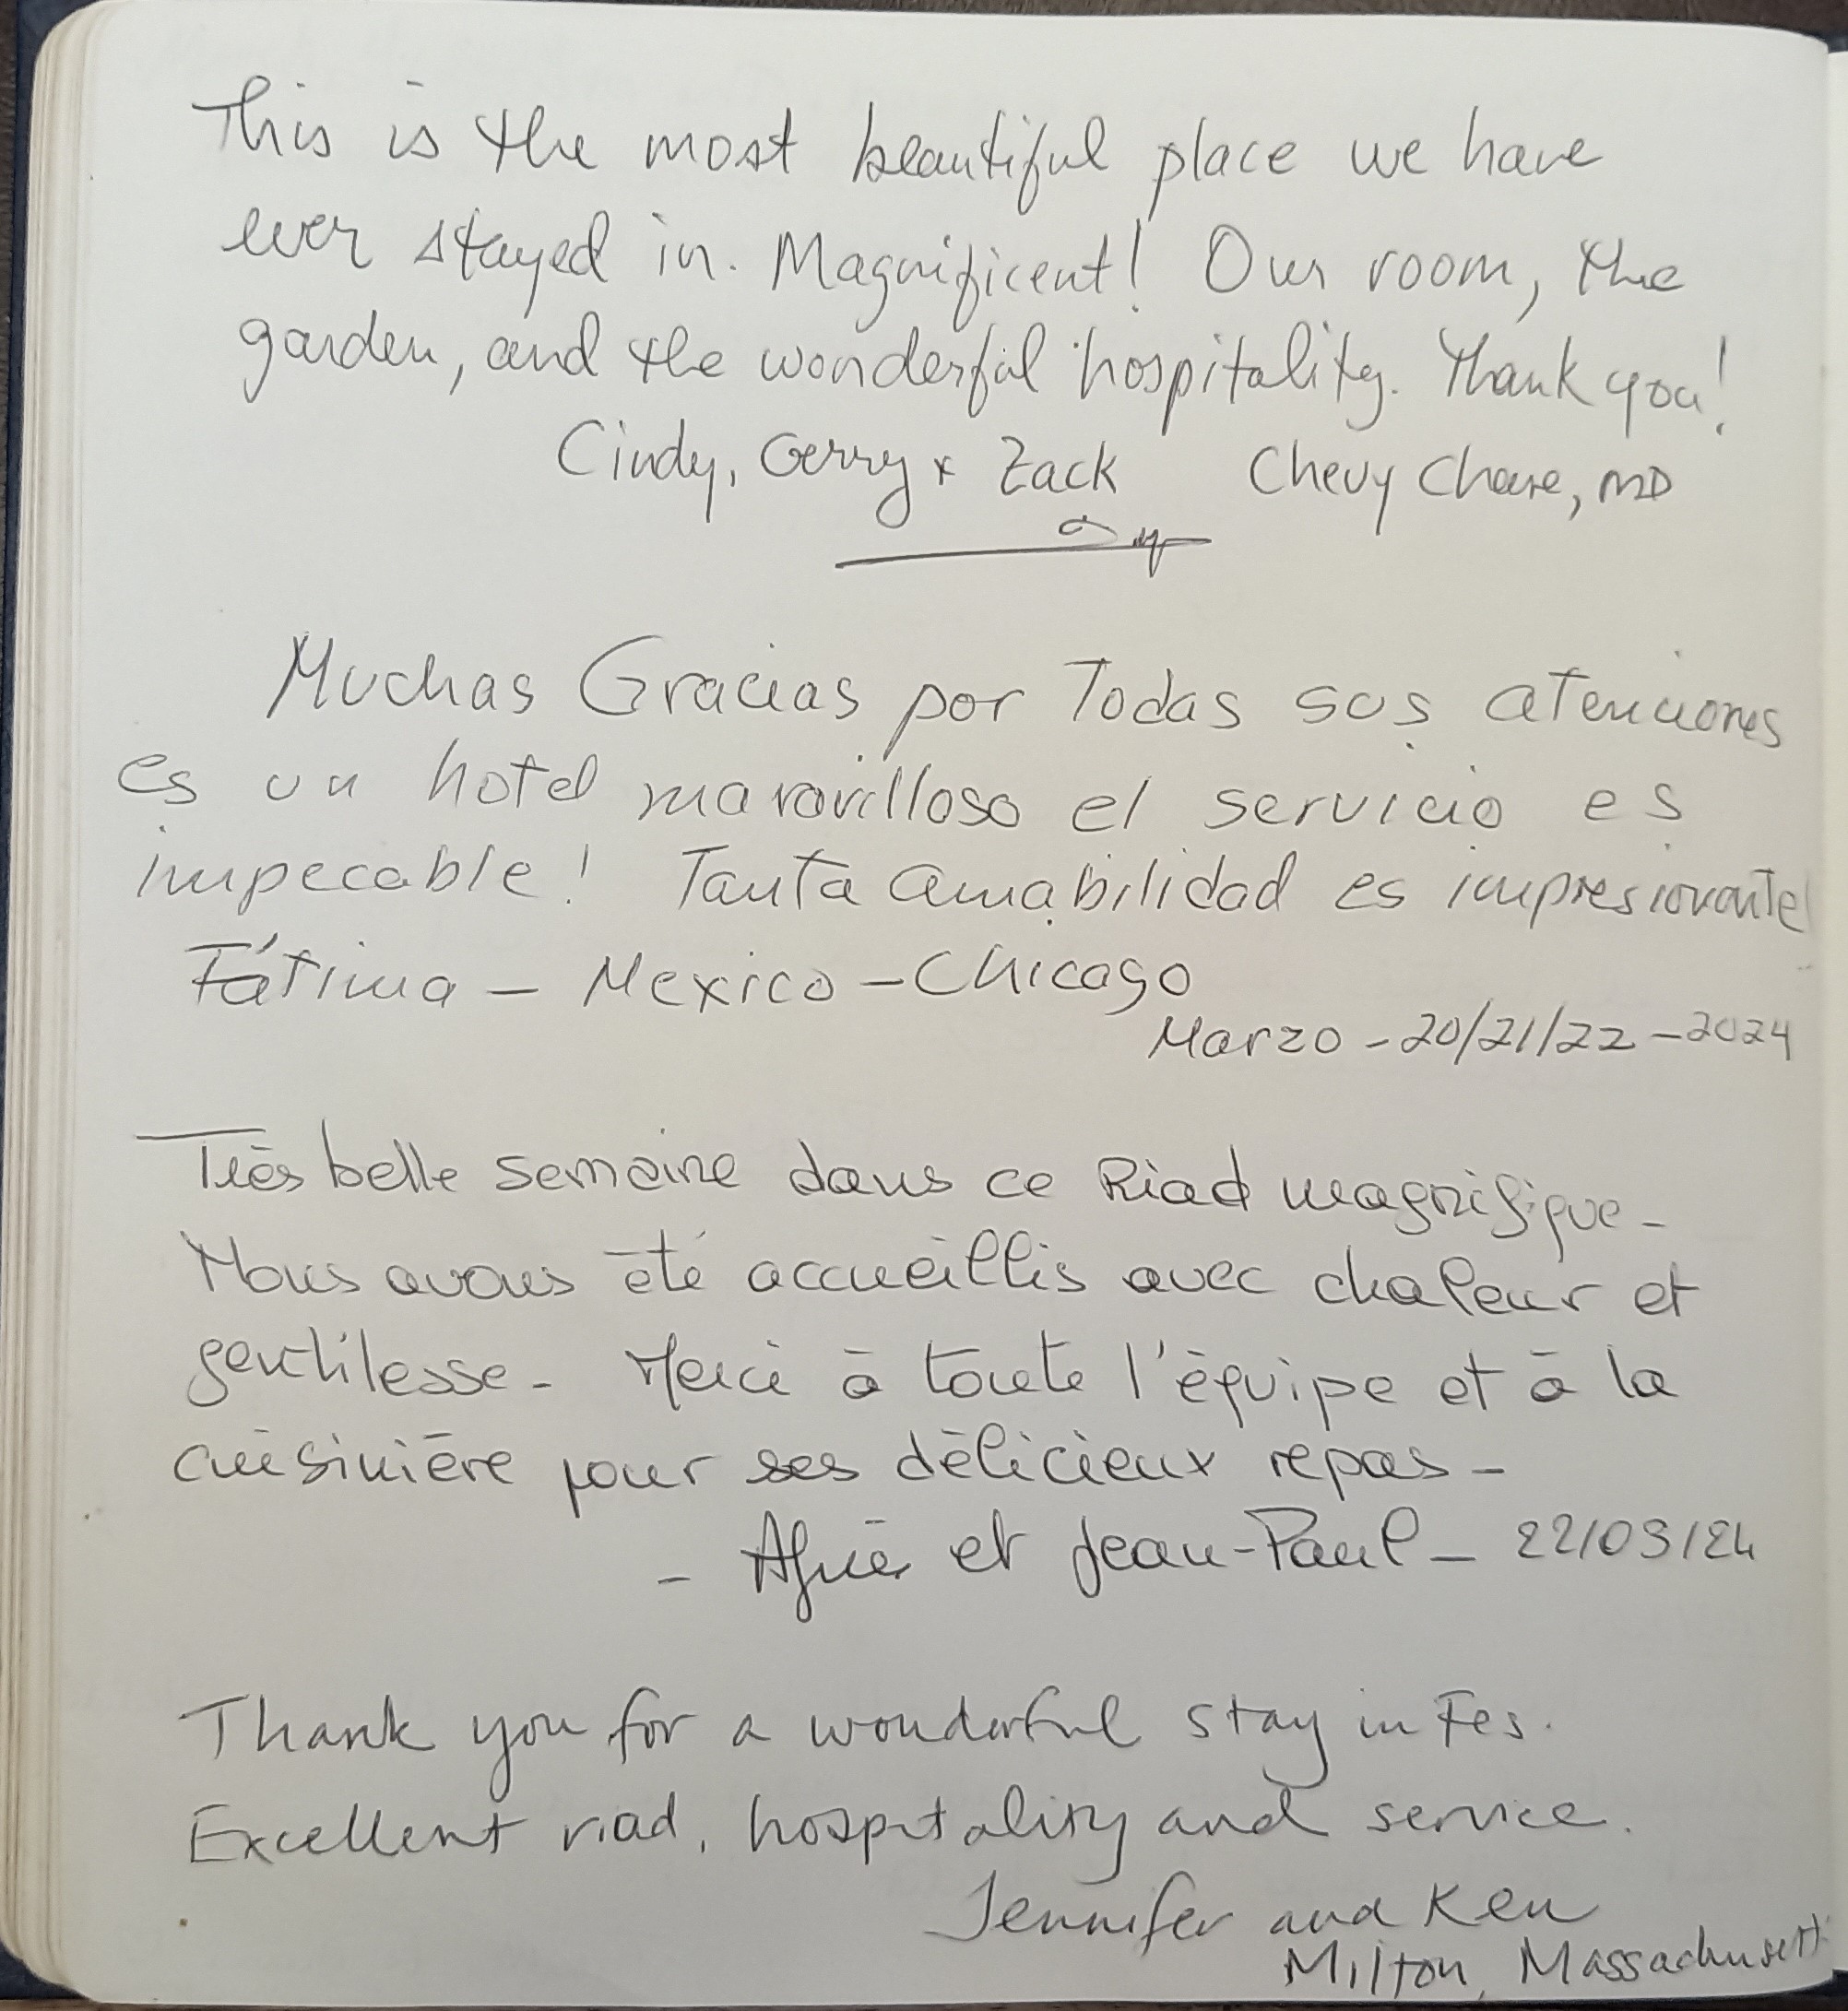 This is the most beautiful place we have
ever stayed in. Magnificent! Our room, the
garden, and the wonderful hospitality. Thank you!
Cindy, Gerry + Zack Chevy Chase, MD
Muchas Gracias por Todas sus atenciones
es un hotel maravilloso el servicio es
impecable! Tanta amabilidad es impresionante!
Fátima - Mexico - Chicago
Marzo - 20/21/22 - 2024
Très belle semaine dans ce Riad magnifique -
Nous avons été accueillis avec chaleur et
gentilesse - Merci à toute l'équipe et à la
cuisinière pour ses délicieux repas -
- et Jean-Paul - 22/03/24
Thank you for a wonderful stay in Fes.
Excellent riad, hospitality and service.
Jennifer and Ken
Milton, Massachusett